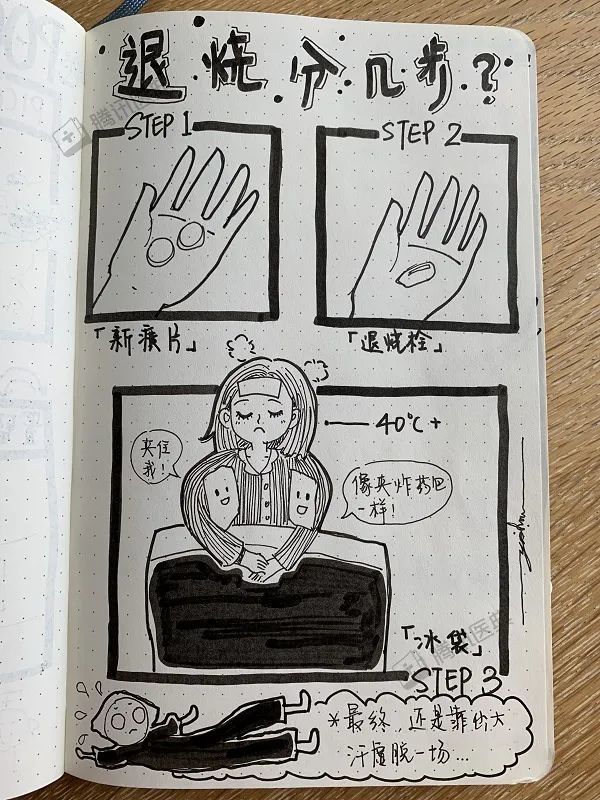 退烧分几步?
STEP 1
STEP 2
「新癀片」
「退烧栓」
40℃+
夹住
我!
像夹炸药包
一样!
「冰袋」
STEP 3
*最终,还是靠出大
汗虚脱一场...
腾讯医典